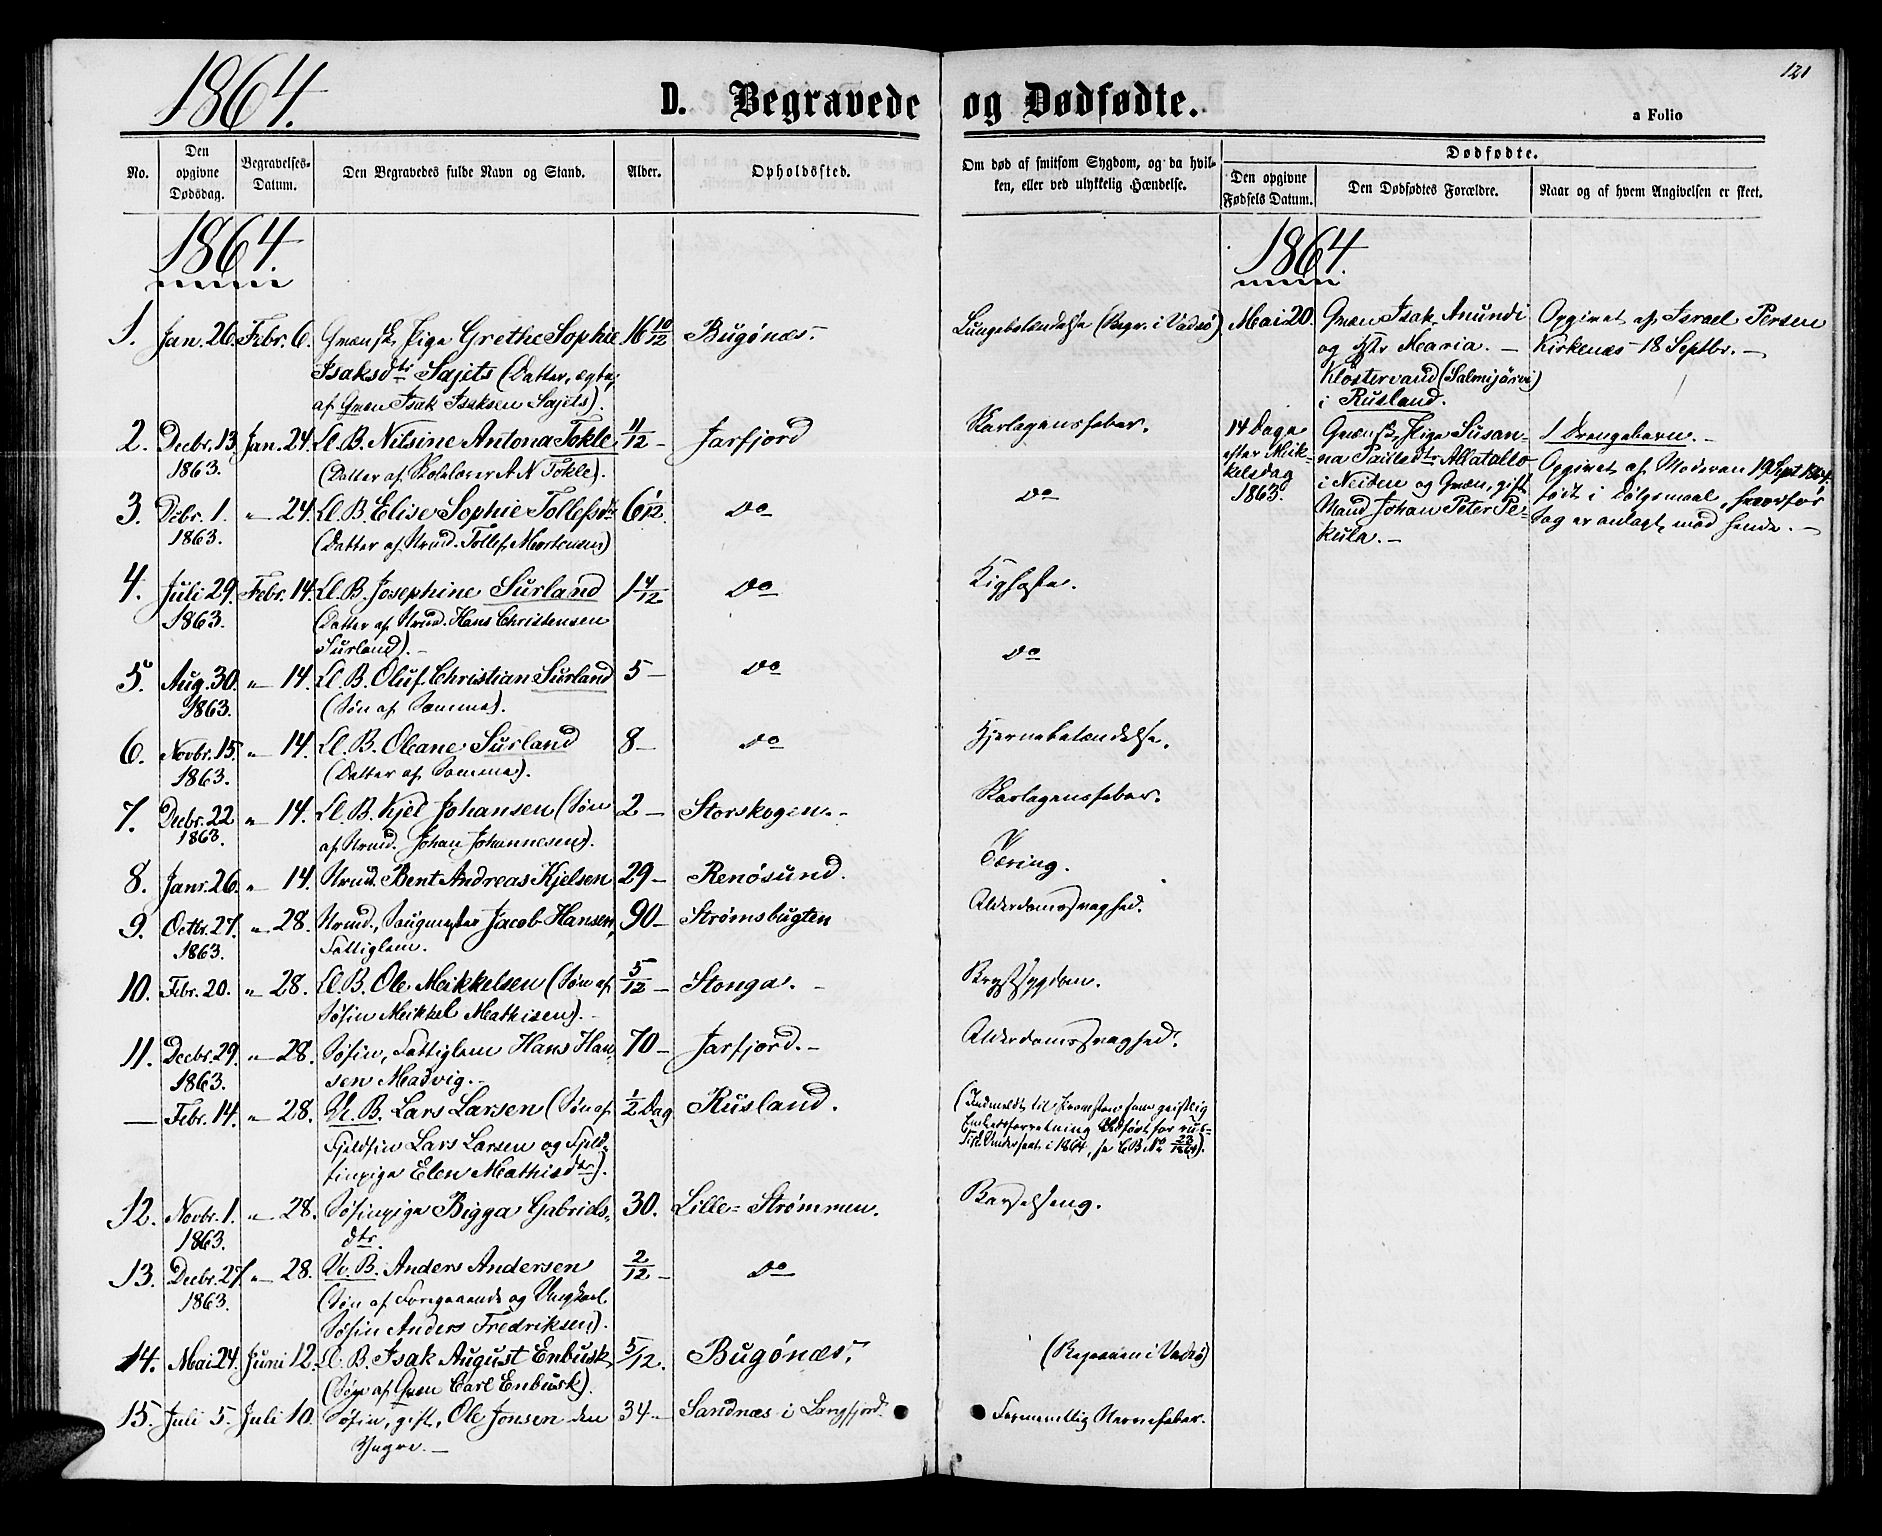 1864.
D. Begravede og Dødfødte.
121
a Folio
No.
Den opgivne Dødsdag.
Begravelses-Datum.
Den Begravedes fulde Navn og Stand.
Alder.
Opholdssted.
Om død af smitsom Sygdom, og da hvil-
ken, eller ved ulykkelig Hændelse.
Dødfødte.
Den opgivne Fødsels Datum.
Den Dødfødtes Forældre.
Naar og af hvem Angivelsen er skeet.
1864.
1864.
1. Jan. 26. Febr. 6. Qvænsk Pige Grethe Sophie 16 10/12 Bugønæs. Lungebetændelse (Begr. i Vadsø)
Isaksdtr Sajets (Datter, ægte,
af Qvæn Isak Isaksen Sajets).
2. Decbr. 13. Jan. 24. Ll. B. Nilsine Antona Tokle 4/12 – Jarfjord Skarlagensfeber.
1863. (Datter af Skolelærer A N Tokle).
3. Dcbr. 1. " 24. Ll. B. Elise Sophie Tollefsdtr 6 1/12. do do
1863. (Datter af Nrmd. Tollef Mortensen)
4. Juli 29. Febr. 14. Ll. B. Josephine Surland 1 4/12 do Kighoste.
1863. (Datter af Nrmd. Hans Christensen
Surland). –
5. Aug. 30. " 14. Ll. B. Oluf Christian Surland 5 – do do
1863. (Søn af Samme).
6. Novbr. 15. " 14. Ll. B. Oleane Surland 8 – do Hjernebetændelse.
1863. (Datter af Samme).
7. Decbr. 22 " 14. Ll. B. Kjel Johansen (Søn 2 – Storskogen. – Skarlagensfeber.
1863. af Nrmd. Johan Johannesen).
8. Janr. 26. " 14. Nrmd. Bent Andreas Kjelsen 29 – Renøsund. Tæring.
9. Octbr. 27. " 28. Nrmd., Jacob Hansen, 90 – Strømsbugten Alderdomssvaghed.
1863. Fattiglem.
10. Febr. 20. " 28. Ll. B. Ole Mikkelsen (Søn af 5/12 – Stonga. – Brystsygdom.
Søfin Mikkel Mathisen). –
11. Decbr. 29. " 28. Søfin, Fattiglem Hans Han- 70 – Jarfjord. – Alderdomssvaghed.
1863. sen Madvig. –
— Febr. 14. " 28. U. B. Lars Larsen (Søn af 1/2 Dag Rusland. (Indmeldt til Præsten som geistlig
Fjeldfin Lars Larsen og Fjeld- Embedsforretning udført for rus-
finpige Elen Mathisdtr). sisk Undersaat i 1864,
12. Novbr. 1. " 28. Søfinpige Bigga Gabriels- 30. Lille-Strømmen. Barselseng.
1863. dtr.
13. Decbr. 27 " 28. U. B. Anders Andersen 2/12 – do
1863. (Søn af Foregaaende og Ungkarl
Søfin Anders Fredriksen).
14. Mai 24. Juni 12. Ll. B. Isak August Enbusk 5/12. Bugønæs. (Begraven i Vadsø)
(Søn af Qvæn Carl Enbusk).
15. Juli 5. Juli 10. Søfin, gift, Ole Jonsen den 34 – Sandnæs i Langfjord. Formentlig Nervefeber.
Yngre. –
Mai 20. Qvæn Isak Anundi Opgivet af Israel Persen
og Hstr Maria. – Kirkenæs 18 Septbr. –
Klostervand (Salmijärvi)
i Rusland.
14 Dage Qvænsk Pige Susan- 1 Drengebarn. –
efter Mik- na Paulsdtr Alatallo Opgivet af Moderen 19 Sept 1864.
kelsdag i Neiden og Qvæn, gift født i Dølgsmaal, hvorfor
1863. Mand Johan Peter Pe- Sag er anlagt mod hende. –
kula. –